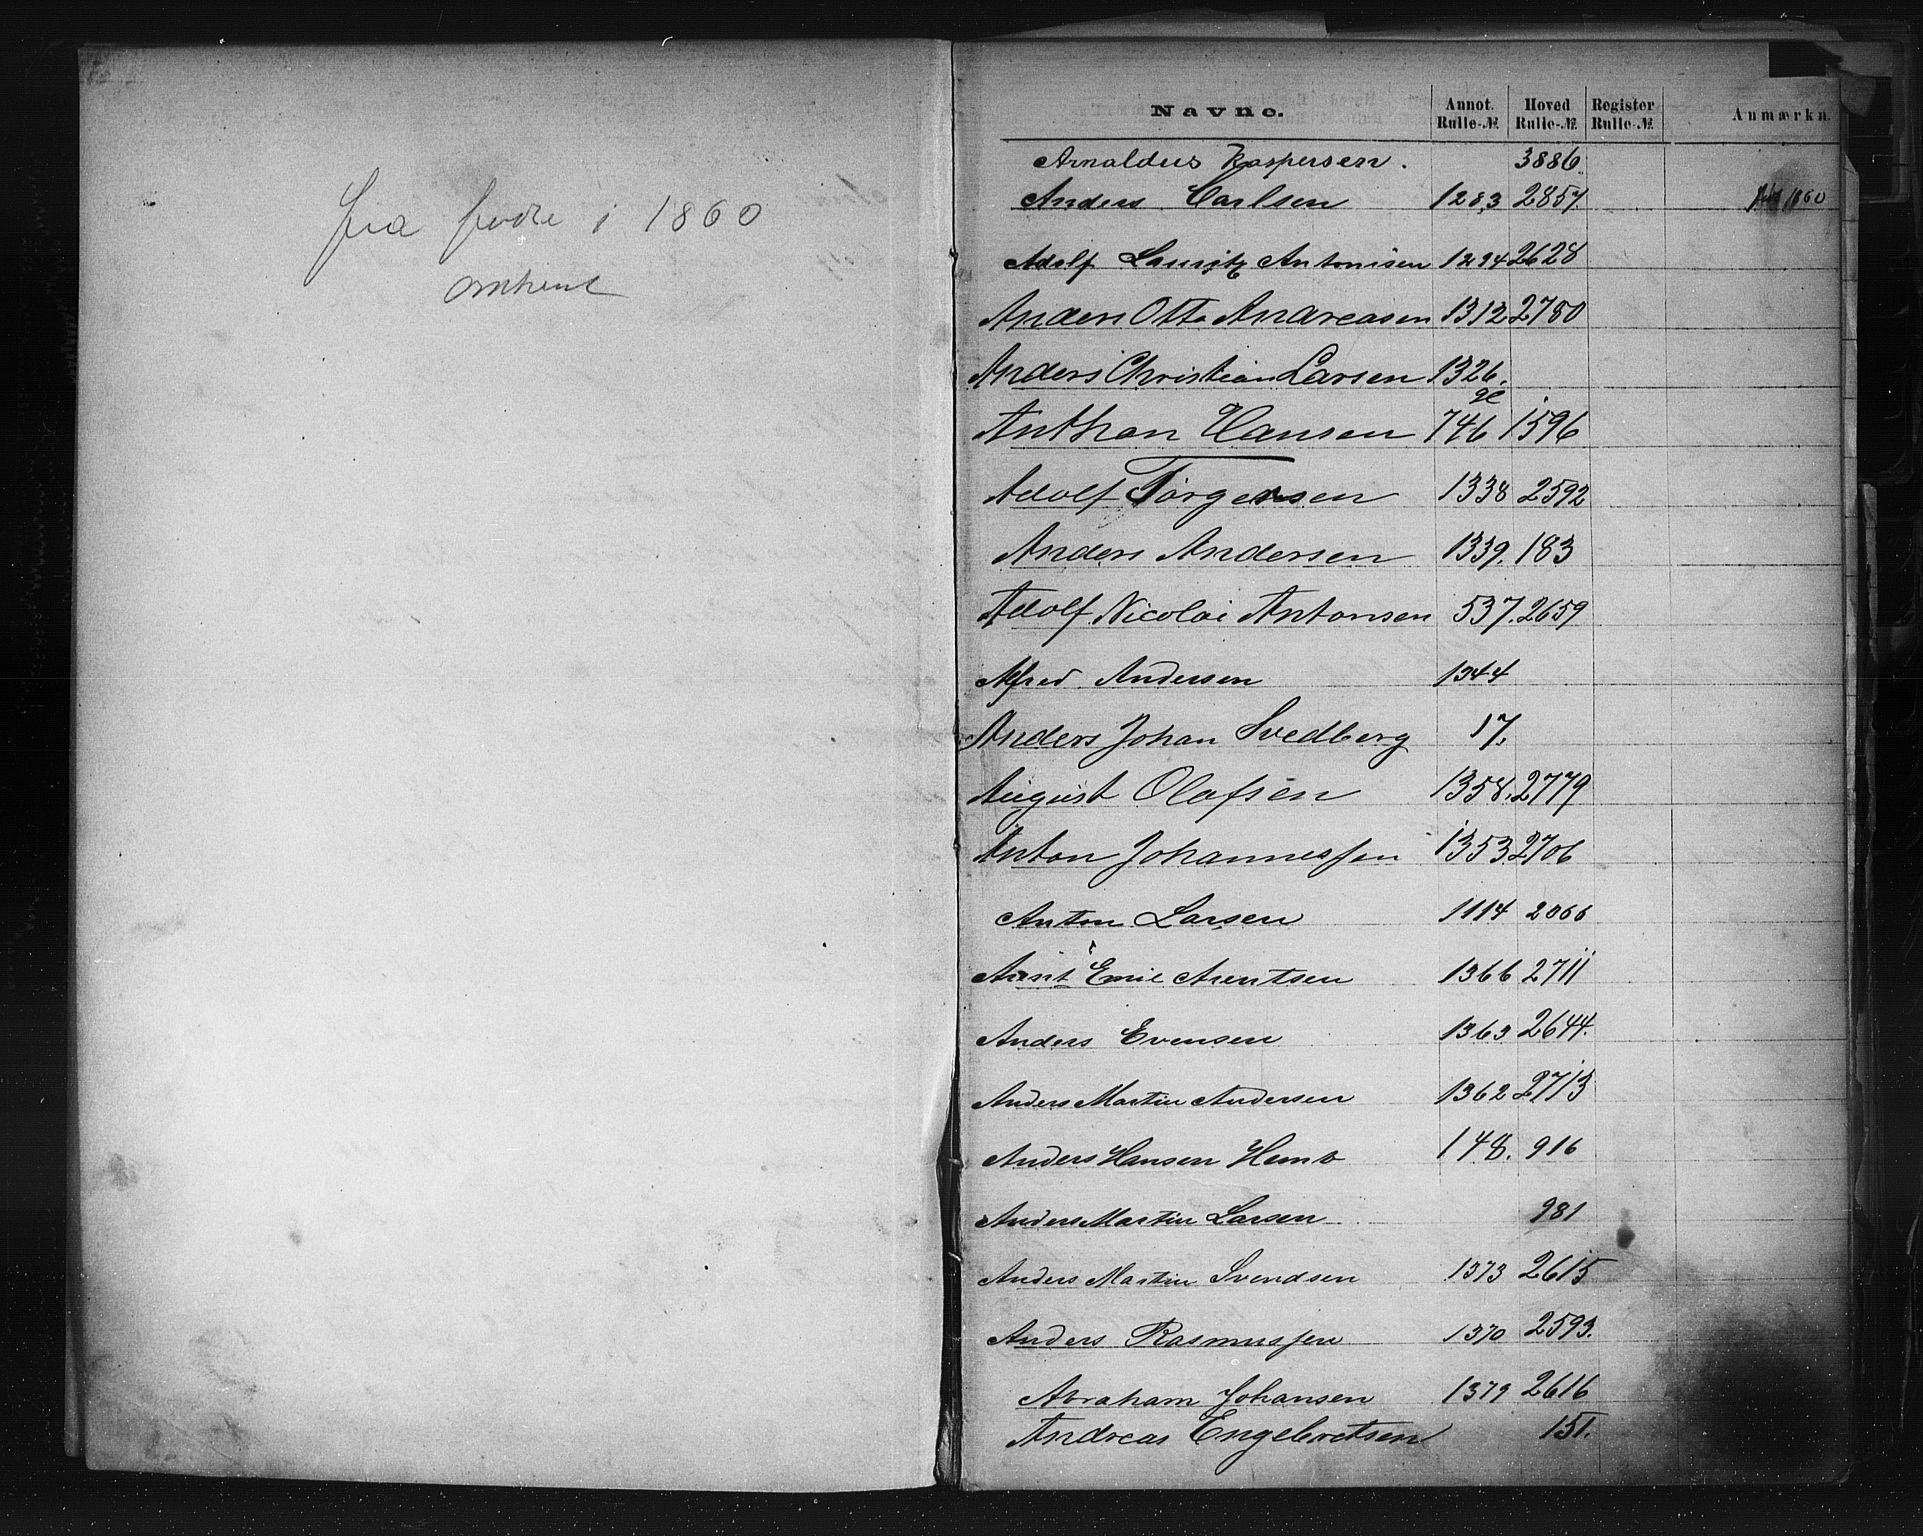 fra fødte i 1860
omkring
Navne. Annot. Rulle-№ Hoved Rulle-№ Register Rulle-№ Anmærkn.
Arnoldus Kaspersen. 3886.
Anders Carlsen 1283 2857. 1860
Adolf Lauritz Antonisen 1294 2628
Anders Otto Andreasen 1312 2780
Anders Christian Larsen 1326.
Anthon Hansen 746 1596
Adolf Torgersen 1338 2592
Anders Andersen 1339. 183
Adolf Nicolai Antonsen 537. 2659
Alfred Andersen 1344
Anders Johan Svedberg 17.
August Olafsen 1358. 2779
Anton Johannessen 1353. 2706
Anton Larsen 1114 2066
Arent Emil Arentsen 1366 2711
Anders Evensen 1363 2644.
Anders Martin Andersen 1362 2713
Anders Hansen Hemb 148. 916
Anders Martin Larsen 981
Anders Martin Svendsen 1373 2615
Anders Rasmussen 1370 2593.
Abraham Johansen 1379 2616
Andreas Engebretsen 151.